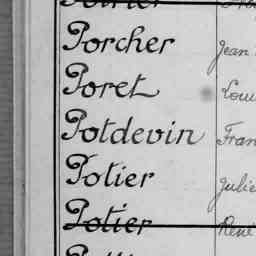 Porcher Jean
Poret Lou
Potdevin Fran
Potier Julie
Potier René